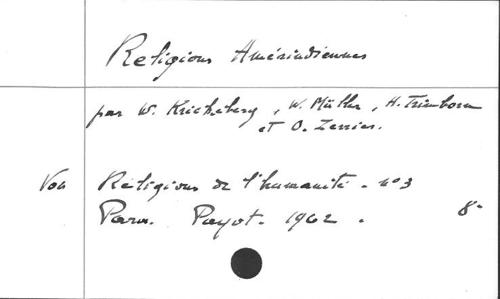 Religions Amérindiennes
par W. Krickeberg, W. Müller, H. Trimborn
et O. Zerries.
Voa Religions de l'humanité - nº 3
Paris. Payot. 1962. 8º